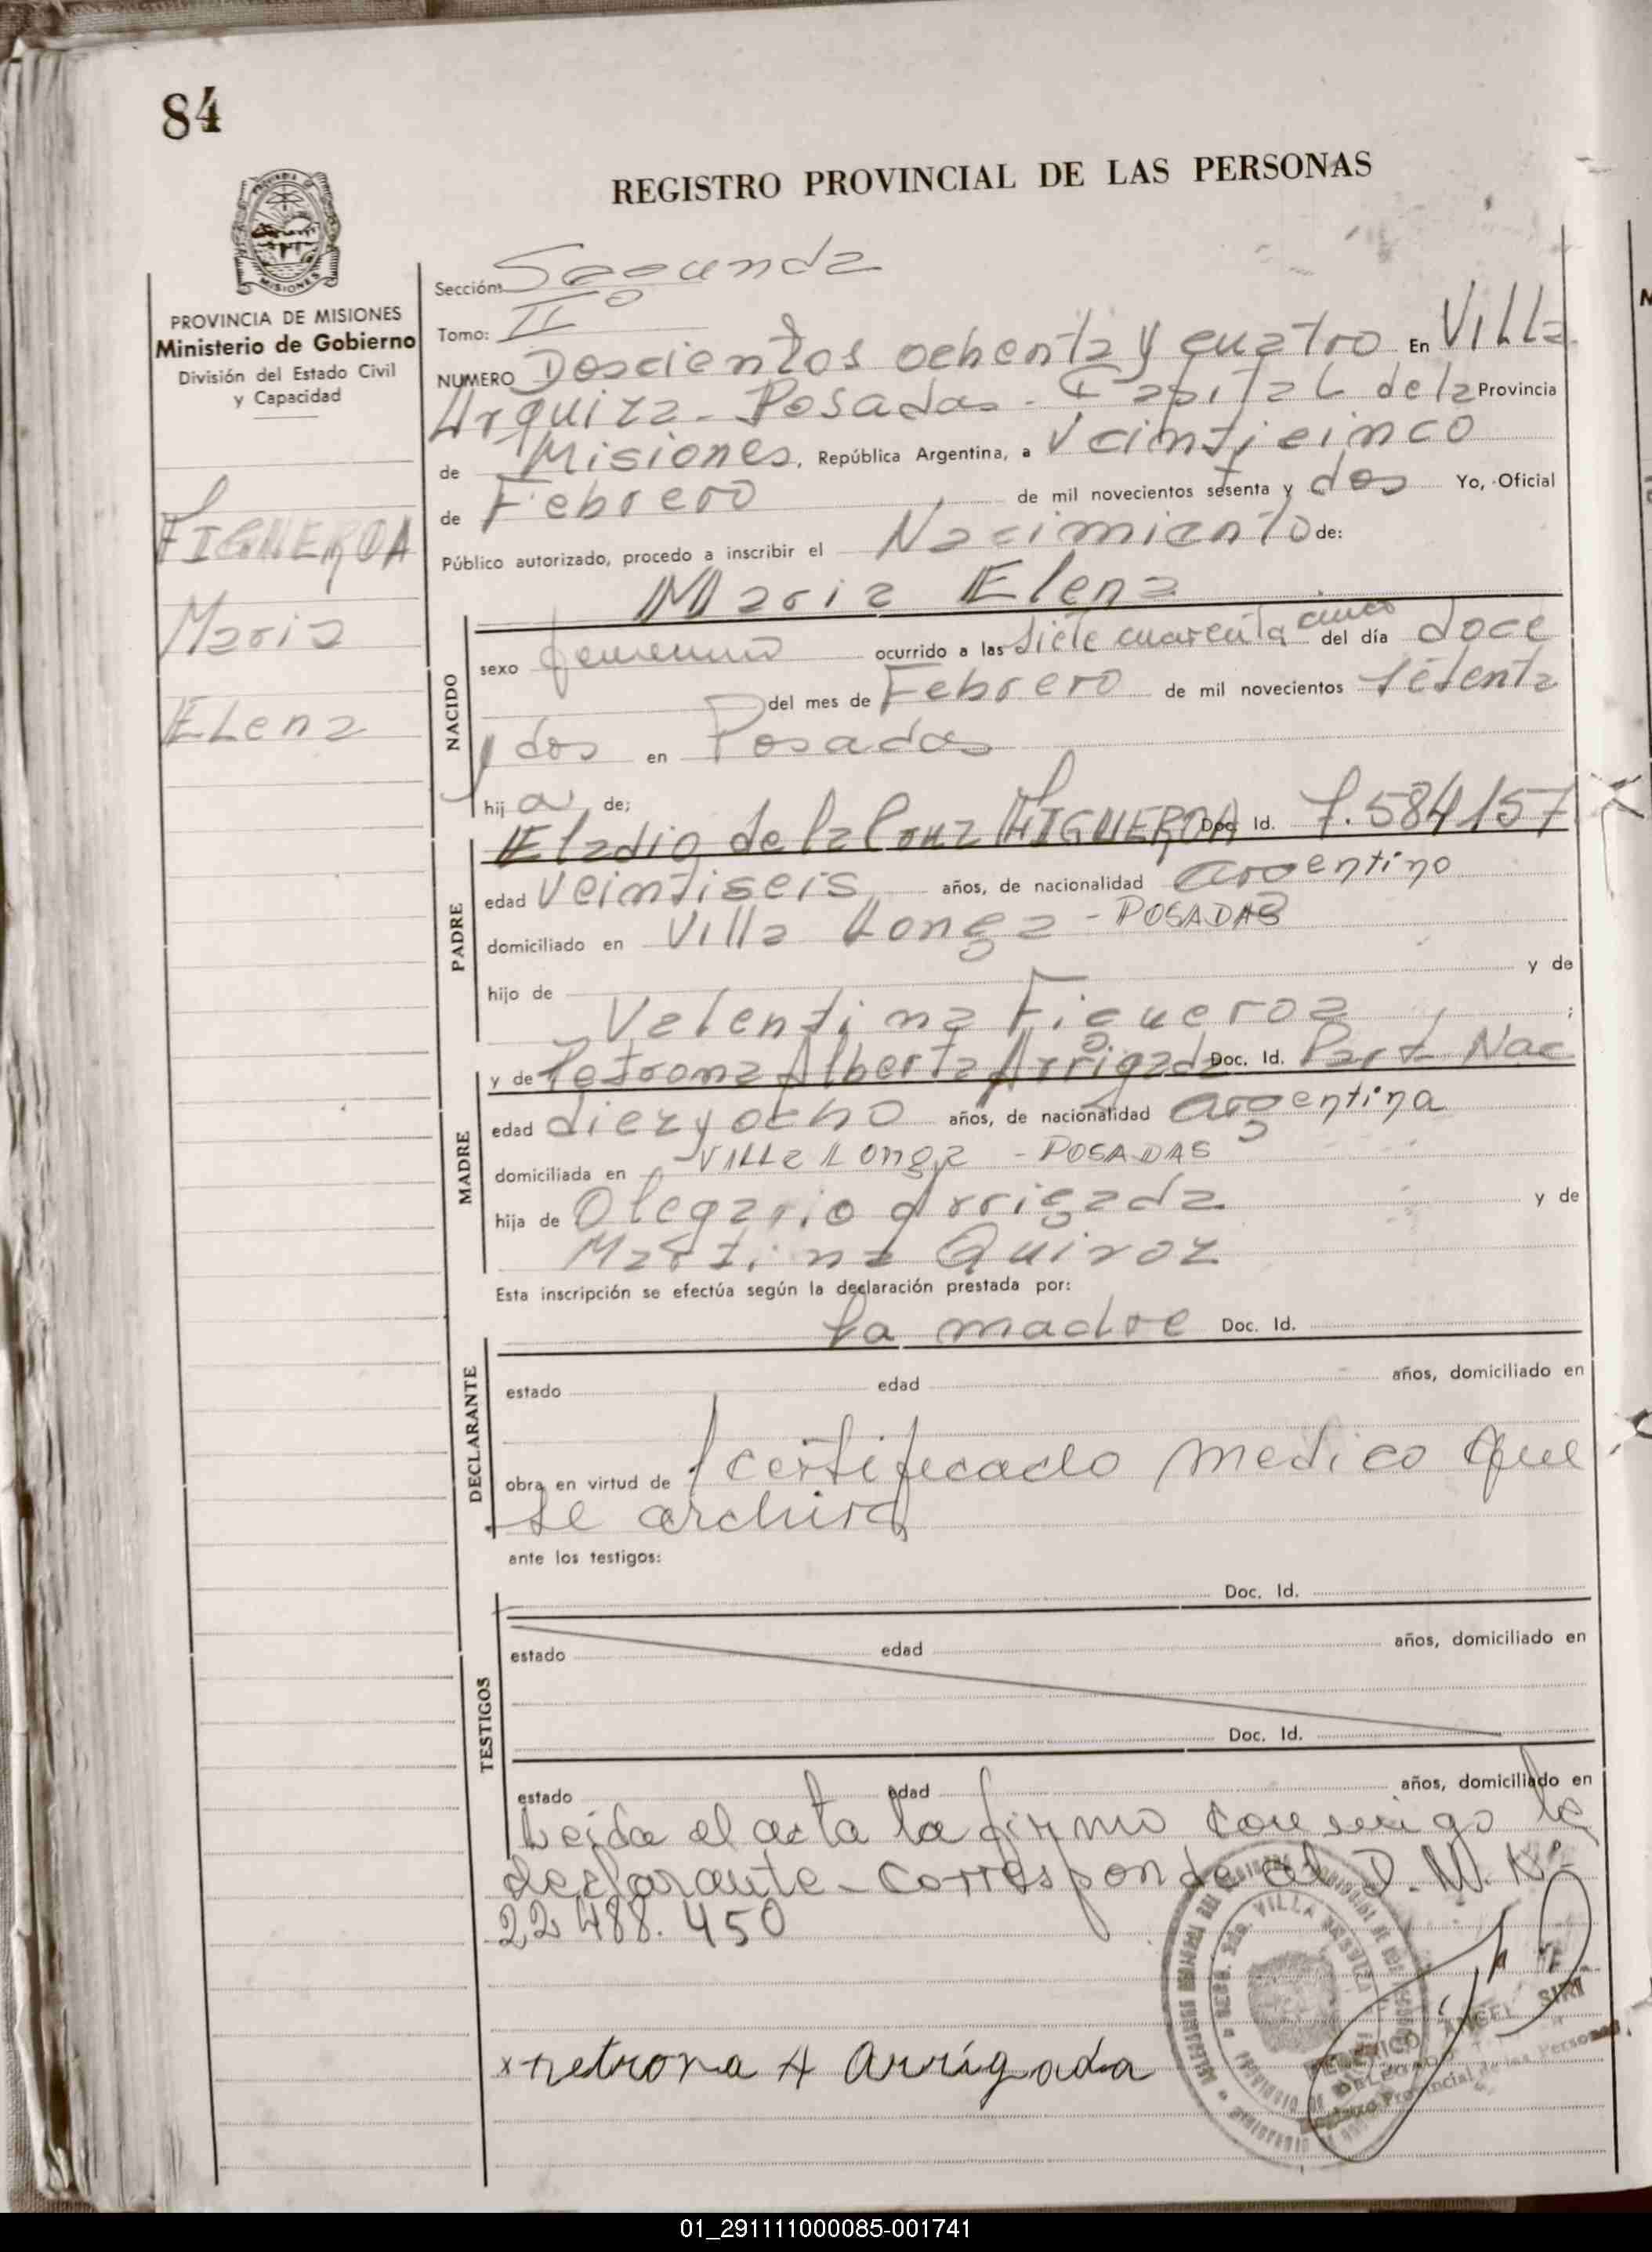 84
REGISTRO PROVINCIAL DE LAS PERSONAS
MISIONES
PROVINCIA DE MISIONES
Ministerio de Gobierno
División del Estado Civil
y Capacidad
FIGUEROA
Maria
ELena
Sección: Segunda
Tomo: IIº
NUMERO Doscientos ochenta y cuatro En Villa
Urquiza - Posadas - Capital de la Provincia
de Misiones, República Argentina, a Veinticinco
de Febrero de mil novecientos sesenta y dos Yo, Oficial
Público autorizado, procedo a inscribir el Nacimiento de:
Maria Elena
NACIDO
sexo femenino ocurrido a las siete cuarenta cinco del día doce
del mes de Febrero de mil novecientos setenta
y dos en Posadas
hij a de;
PADRE
Eladio de la Cruz FIGUEROA Doc. Id. 7.584157
edad Veintiseis años, de nacionalidad argentino
domiciliado en Villa Longa - POSADAS
hijo de y de
Valentina Figueroa ;
MADRE
y de Petrona Alberta Arrigada Doc. Id. Part Nac
edad diez y ocho años, de nacionalidad argentina
domiciliada en Villa Longa - POSADAS
hija de Olegario Arrigada y de
Martina Quiroz
Esta inscripción se efectúa según la declaración prestada por:
DECLARANTE
La madre Doc. Id.
estado edad años, domiciliado en
obra en virtud de certificado medico que
se archiva
ante los testigos:
TESTIGOS
Doc. Id.
estado edad años, domiciliado en
Doc. Id.
estado edad años, domiciliado en
Leida el acta la firmo conmigo la
declarante - Corresponde al D.N.I. Nº
22 488. 450
x Petrona A Arrigada
VILLA URQUIZA
FEDERICO ANGEL SIRI
DELEGADO
Registro Provincial de las Personas
01_291111000085-001741